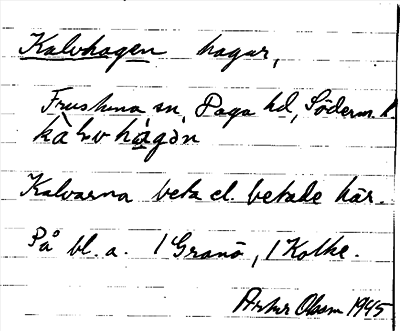 Kalvhagen hagar,
Frustuna sn, Daga hd, Söderm. l.
kàlvhágən
Kalvarna beta el. betade här.
På bl. a. 1 Granö, 1 Kolke.
Olsson 1945